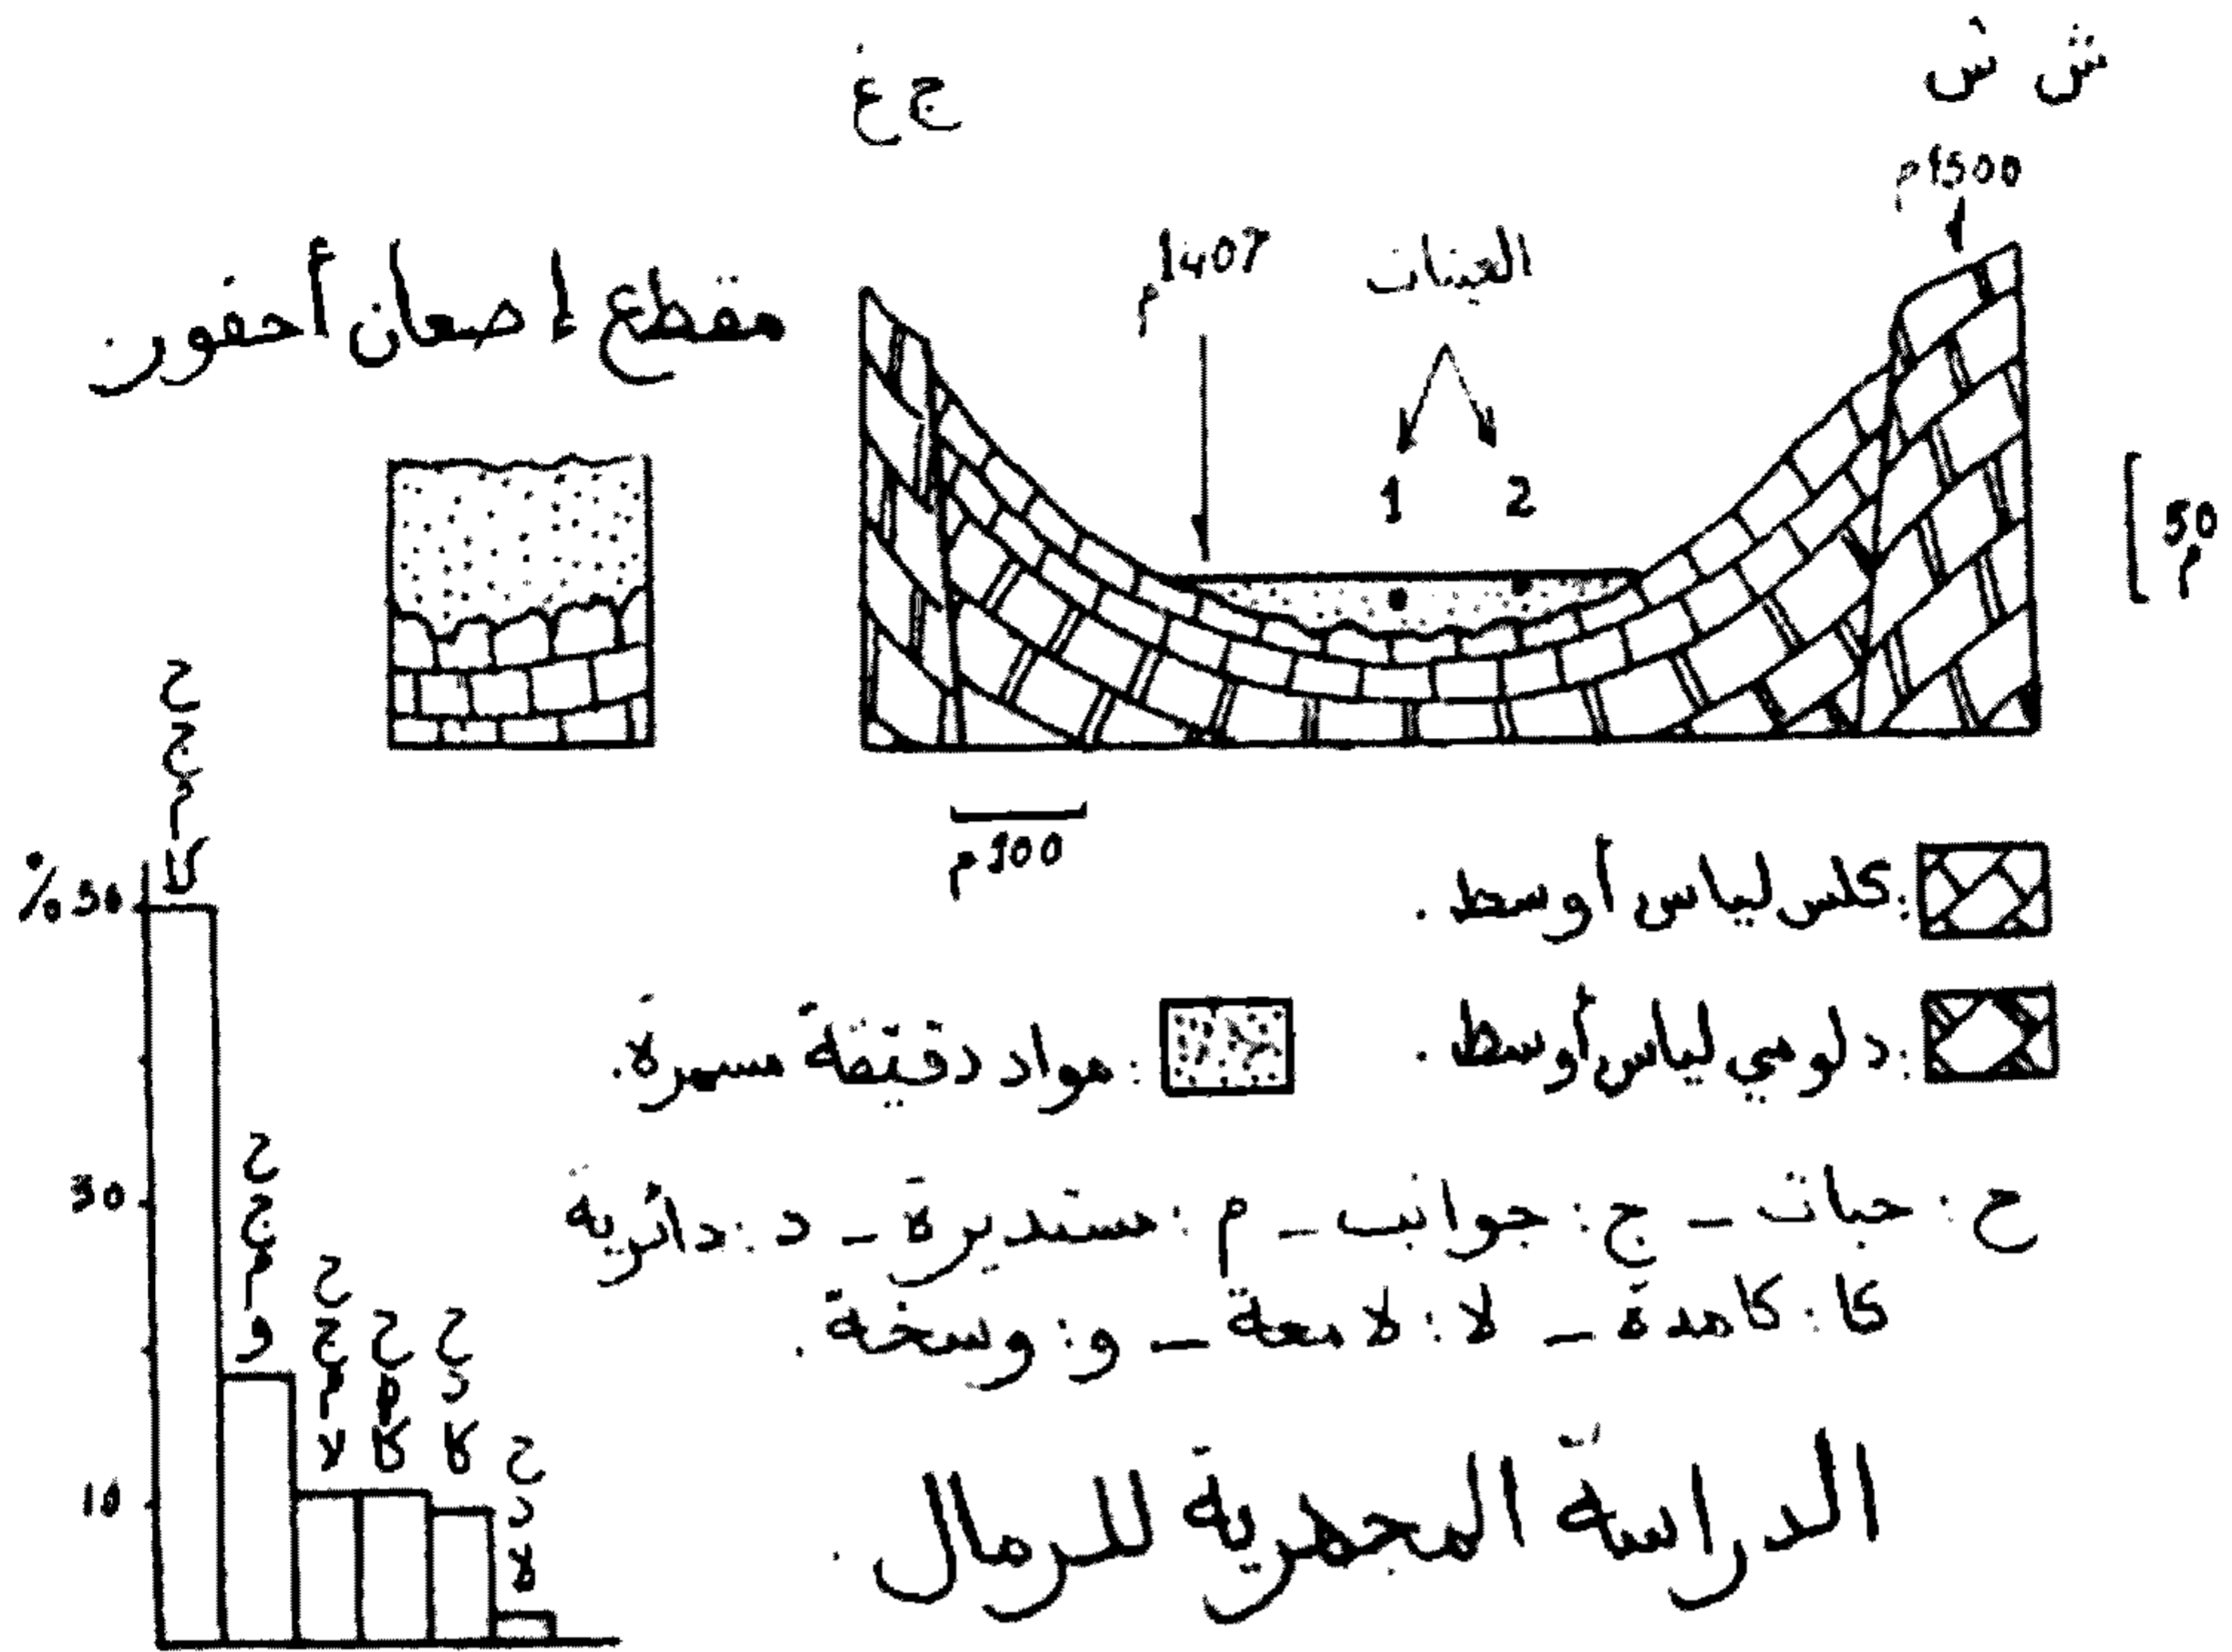 ش ش
ج غ
1500م
1407م
العينات
1 2
مقطع إصعان أحفور.
50م
100م
كلس لياس أوسط.
دلومي لياس أوسط.
مواد دقيقة مسمرة.
ح: حبات – ج: جوانب – م: مستديرة – د: دائرية
كا: كامدة – لا: لامعة – و: وسخة.
الدراسة المجهرية للرمال.
% 50
30
10
ح ج م كا
ح ج م و
ح ج م لا
ح م كا
ح د كا
ح د لا